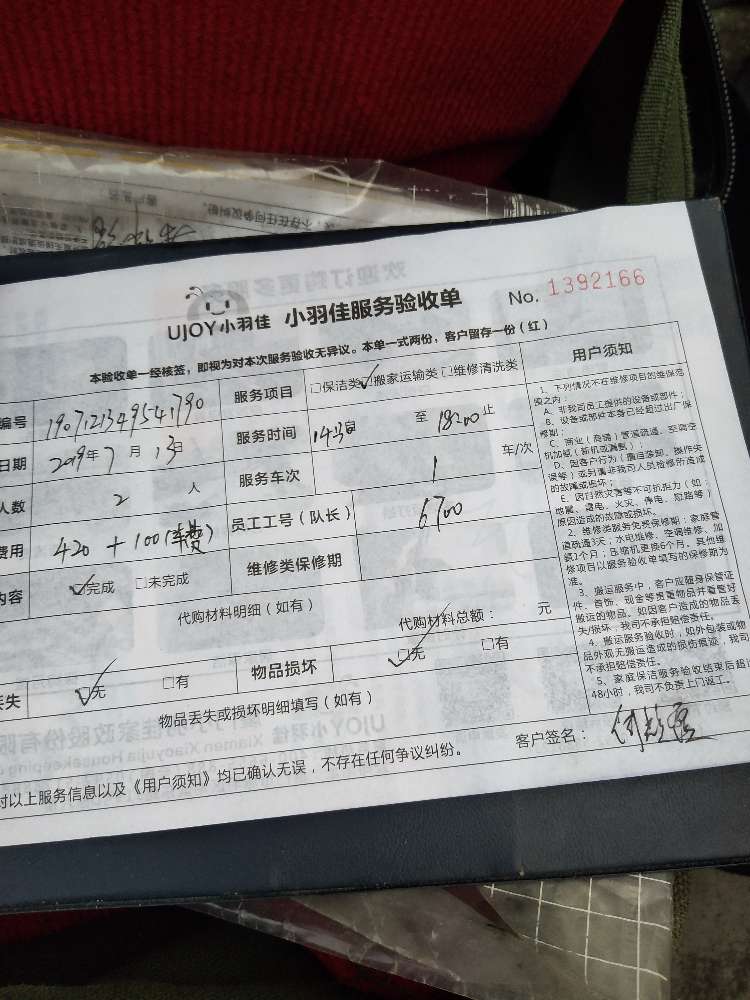 UJOY小羽佳 小羽佳服务验收单 No. 1392166
本验收单一经核签，即视为对本次服务验收无异议。本单一式两份，客户留存一份（红）
编号 1907121349541790 服务项目 □保洁类 ☑搬家运输类 □维修清洗类
日期 2019年7月13日 服务时间 至 18:00 止
人数 2 人 服务车次 1 车/次
费用 420 + 100(车费) 员工工号（队长） 6700
内容 ☑完成 □未完成 维修类保修期
代购材料明细（如有）
代购材料总额： 元
丢失 ☑无 □有 物品损坏 ☑无 □有
物品丢失或损坏明细填写（如有）
对以上服务信息以及《用户须知》均已确认无误，不存在任何争议纠纷。
客户签名：
用户须知
1、下列情况不在维修项目的维保范
围之内：
A、非我司员工提供的设备或部件；
B、设备或部件本身已经超过出厂保
修期；
C、商业（商铺）管道疏通，空调空
机加氨（新机或漏氨）；
D、因客户行为（擅自装卸、操作失
误等）或别请非我司人员检修所造成
的故障或损坏；
E、因自然灾害等不可抗拒力（如：
地震、雷电、火灾、停电、鼠蹈等）
原因造成的故障或损坏。
2、维修类服务免费保修期：家庭管
道疏通3天，水电维修、空调维修、加
氨2个月；压缩机更换6个月，其他维
修项目以服务验收单填写的保修期为
准。
3、搬运服务中，客户应随身保管证
件、首饰、现金等贵重物品并看管好
搬运的物品。如因客户造成的物品丢
失/损坏，我司不承担赔偿责任。
4、搬运服务验收时，如外包装或物
品外观无搬运造成的损伤痕迹，我司
不承担赔偿责任。
5、家庭保洁服务验收结束后超过
48小时，我司不负责上门返工。